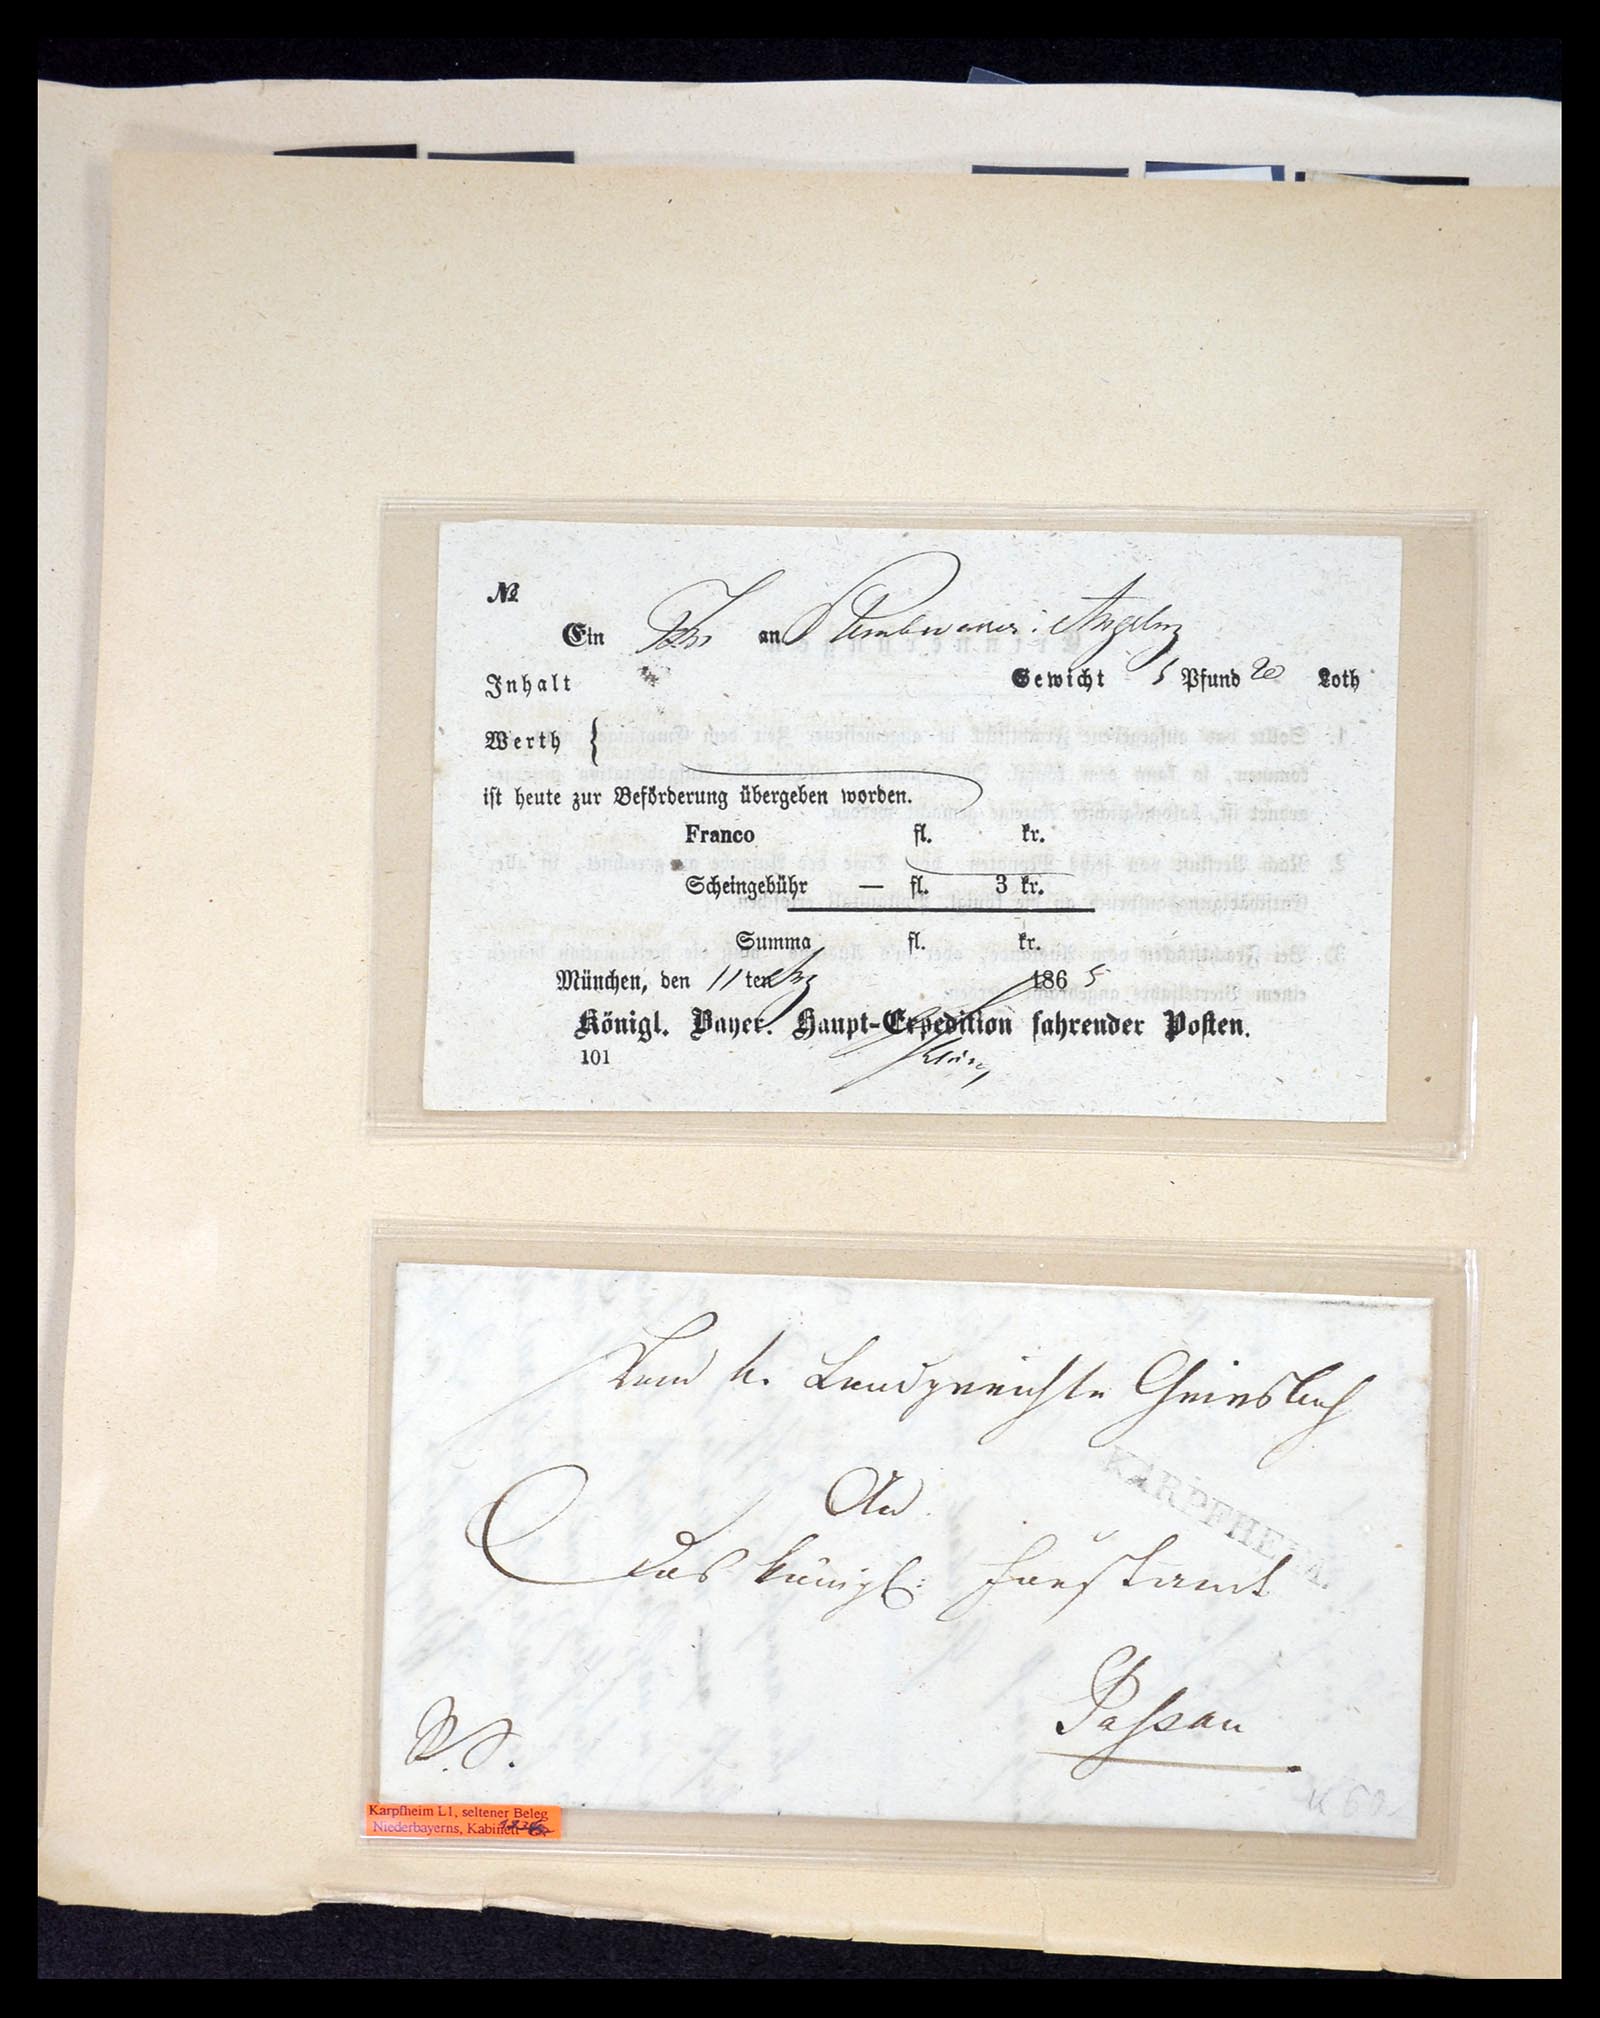 №
Ein an
Inhalt Gewicht 5 Pfund 20 Loth
Werth {
ist heute zur Beförderung übergeben worden.
Franco fl. kr.
Scheingebühr — fl. 3 kr.
Summa fl. kr.
München, den 11 ten 186 5
Königl. Bayer. Haupt-Expedition fahrender Posten.
101
Vom k. Landgerichte Griesbach
KARPFHEIM.
An
das königl: Forstamt
Passau
R. S.
K 60
Karpfheim L1, seltener Beleg
Niederbayerns, Kabinett